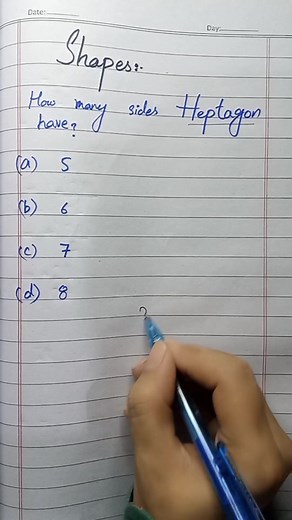 Date:
Day:
Shapes:-
How many sides Heptagon
have?
(a) 5
(b) 6
(c) 7
(d) 8
?